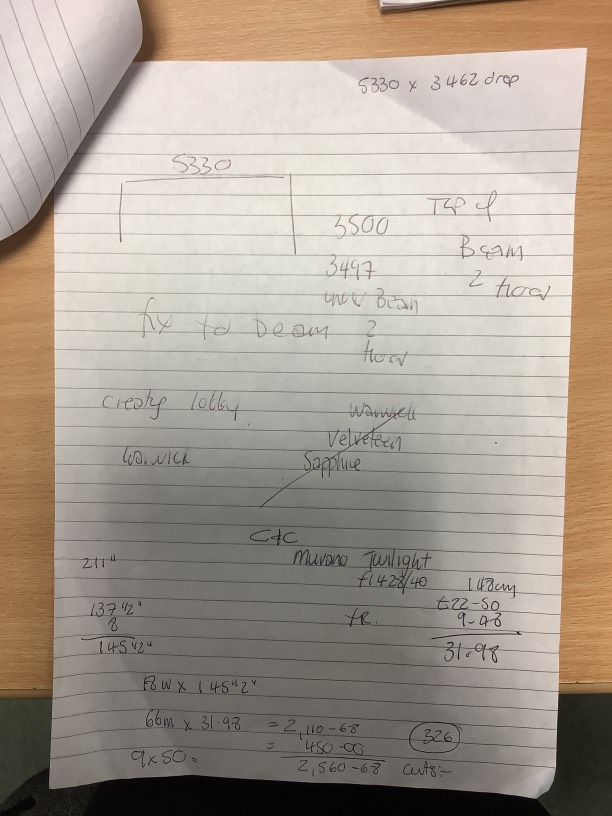 5330 x 3462 drop
5330
3500
Top of
Beam
2 floor
3497
Beam
2
floor
fix to Beam
Creating lobby
Warwick
Velveteen
Sapphire
C+C
211"
Murano Twilight
F1428/40
148cm
137 1/2"
8
145 1/2"
FR.
£22-50
9-48
31.98
18W x 145 1/2"
66m x 31.98 = 2,110-68
9x50 = = 450-00
2,560-68
326
cuts:-